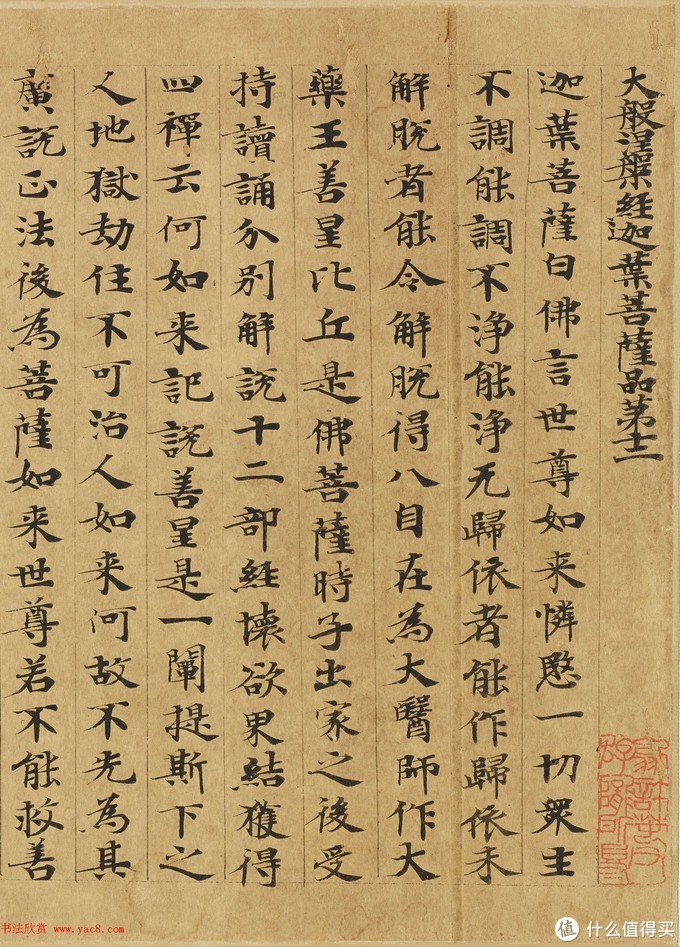 大般涅槃經迦葉菩薩品第十二
迦葉菩薩白佛言世尊如来憐愍一切衆生
不調能調不淨能淨无歸依者能作歸依未
解脱者能令解脱得八自在為大醫師作大
藥王善星比丘是佛菩薩時子出家之後受
持讀誦分別解説十二部經壞欲界結獲得
四禪云何如来記説善星是一闡提斯下之
人地獄劫住不可治人如来何故不先為其
廣説正法後為菩薩如来世尊若不能救善
书法欣赏 www.yac8.com
值 什么值得买